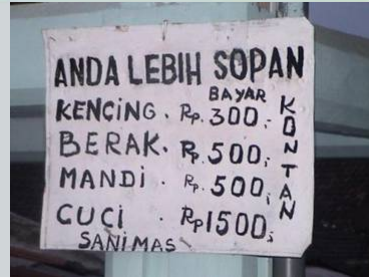 ANDA LEBIH SOPAN
BAYAR KONTAN
KENCING . Rp. 300,-
BERAK. Rp. 500,-
MANDI . Rp. 500,-
CUCI . Rp1500,-
SANIMAS